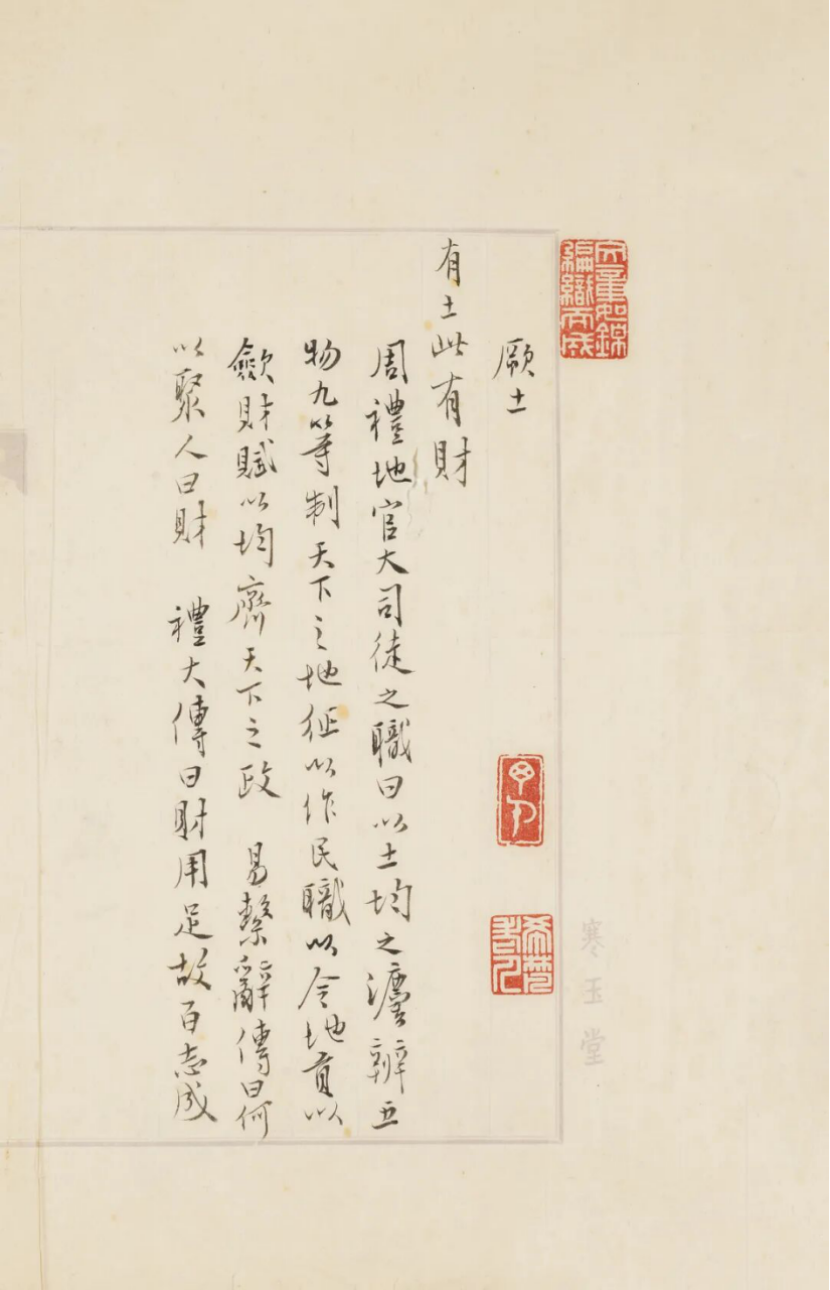 文章如錦
編織而成
厥土
有土此有財
周禮地官大司徒之職曰以土均之灋辨五
物九等制天下之地征以作民職以令地貢以
斂財賦以均齊天下之政 易繫辭傳曰何
以聚人曰財 禮大傳曰財用足故百志成
寒玉堂